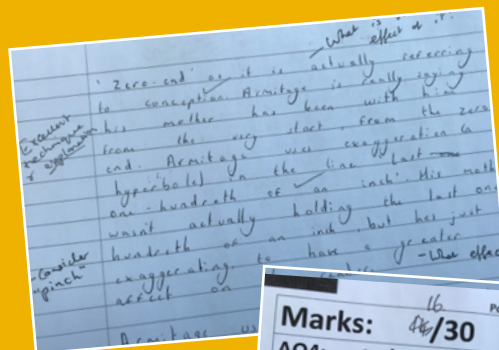 - What is
effect of it.
'zero-end' as it is actually referring
to conception. Armitage is really saying
his mother has been with him
from the very start, from the zero
end. Armitage uses exaggeration &
hyperbole) in the line 'last
one-hundredth of an inch'. His moth
wasn't actually holding the last one
hundreth of an inch, but he's just
exaggerating to have a greater
affect on reader. - What effec
Armitage us
Excellent
technique
& explanation
- Consider
"pinch"
16
Marks: /30